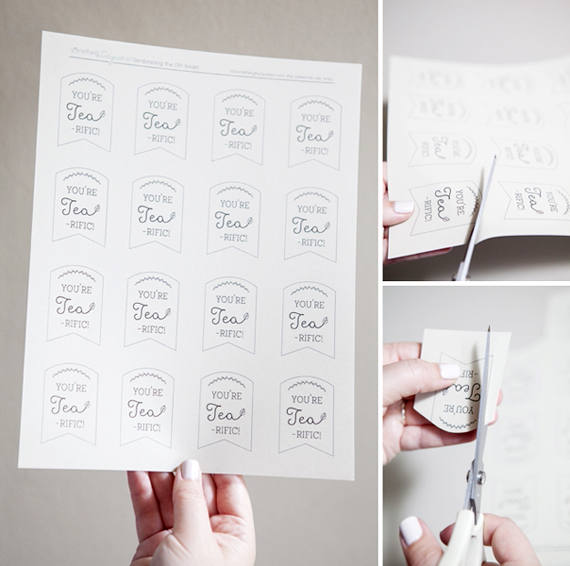 Something Turquoise
YOU'RE
Tea
-RIFIC!
YOU'RE
Tea
-RIFIC!
YOU'RE
Tea
-RIFIC!
YOU'RE
Tea
-RIFIC!
YOU'RE
Tea
-RIFIC!
YOU'RE
Tea
-RIFIC!
YOU'RE
Tea
-RIFIC!
YOU'RE
Tea
-RIFIC!
YOU'RE
Tea
-RIFIC!
YOU'RE
Tea
-RIFIC!
YOU'RE
Tea
-RIFIC!
YOU'RE
Tea
-RIFIC!
YOU'RE
Tea
-RIFIC!
YOU'RE
Tea
-RIFIC!
YOU'RE
Tea
-RIFIC!
YOU'RE
Tea
-RIFIC!
YOU'RE
Tea
-RIFIC!
YOU'RE
Tea
-RIFIC!
YOU'RE
Tea
-RIFIC!